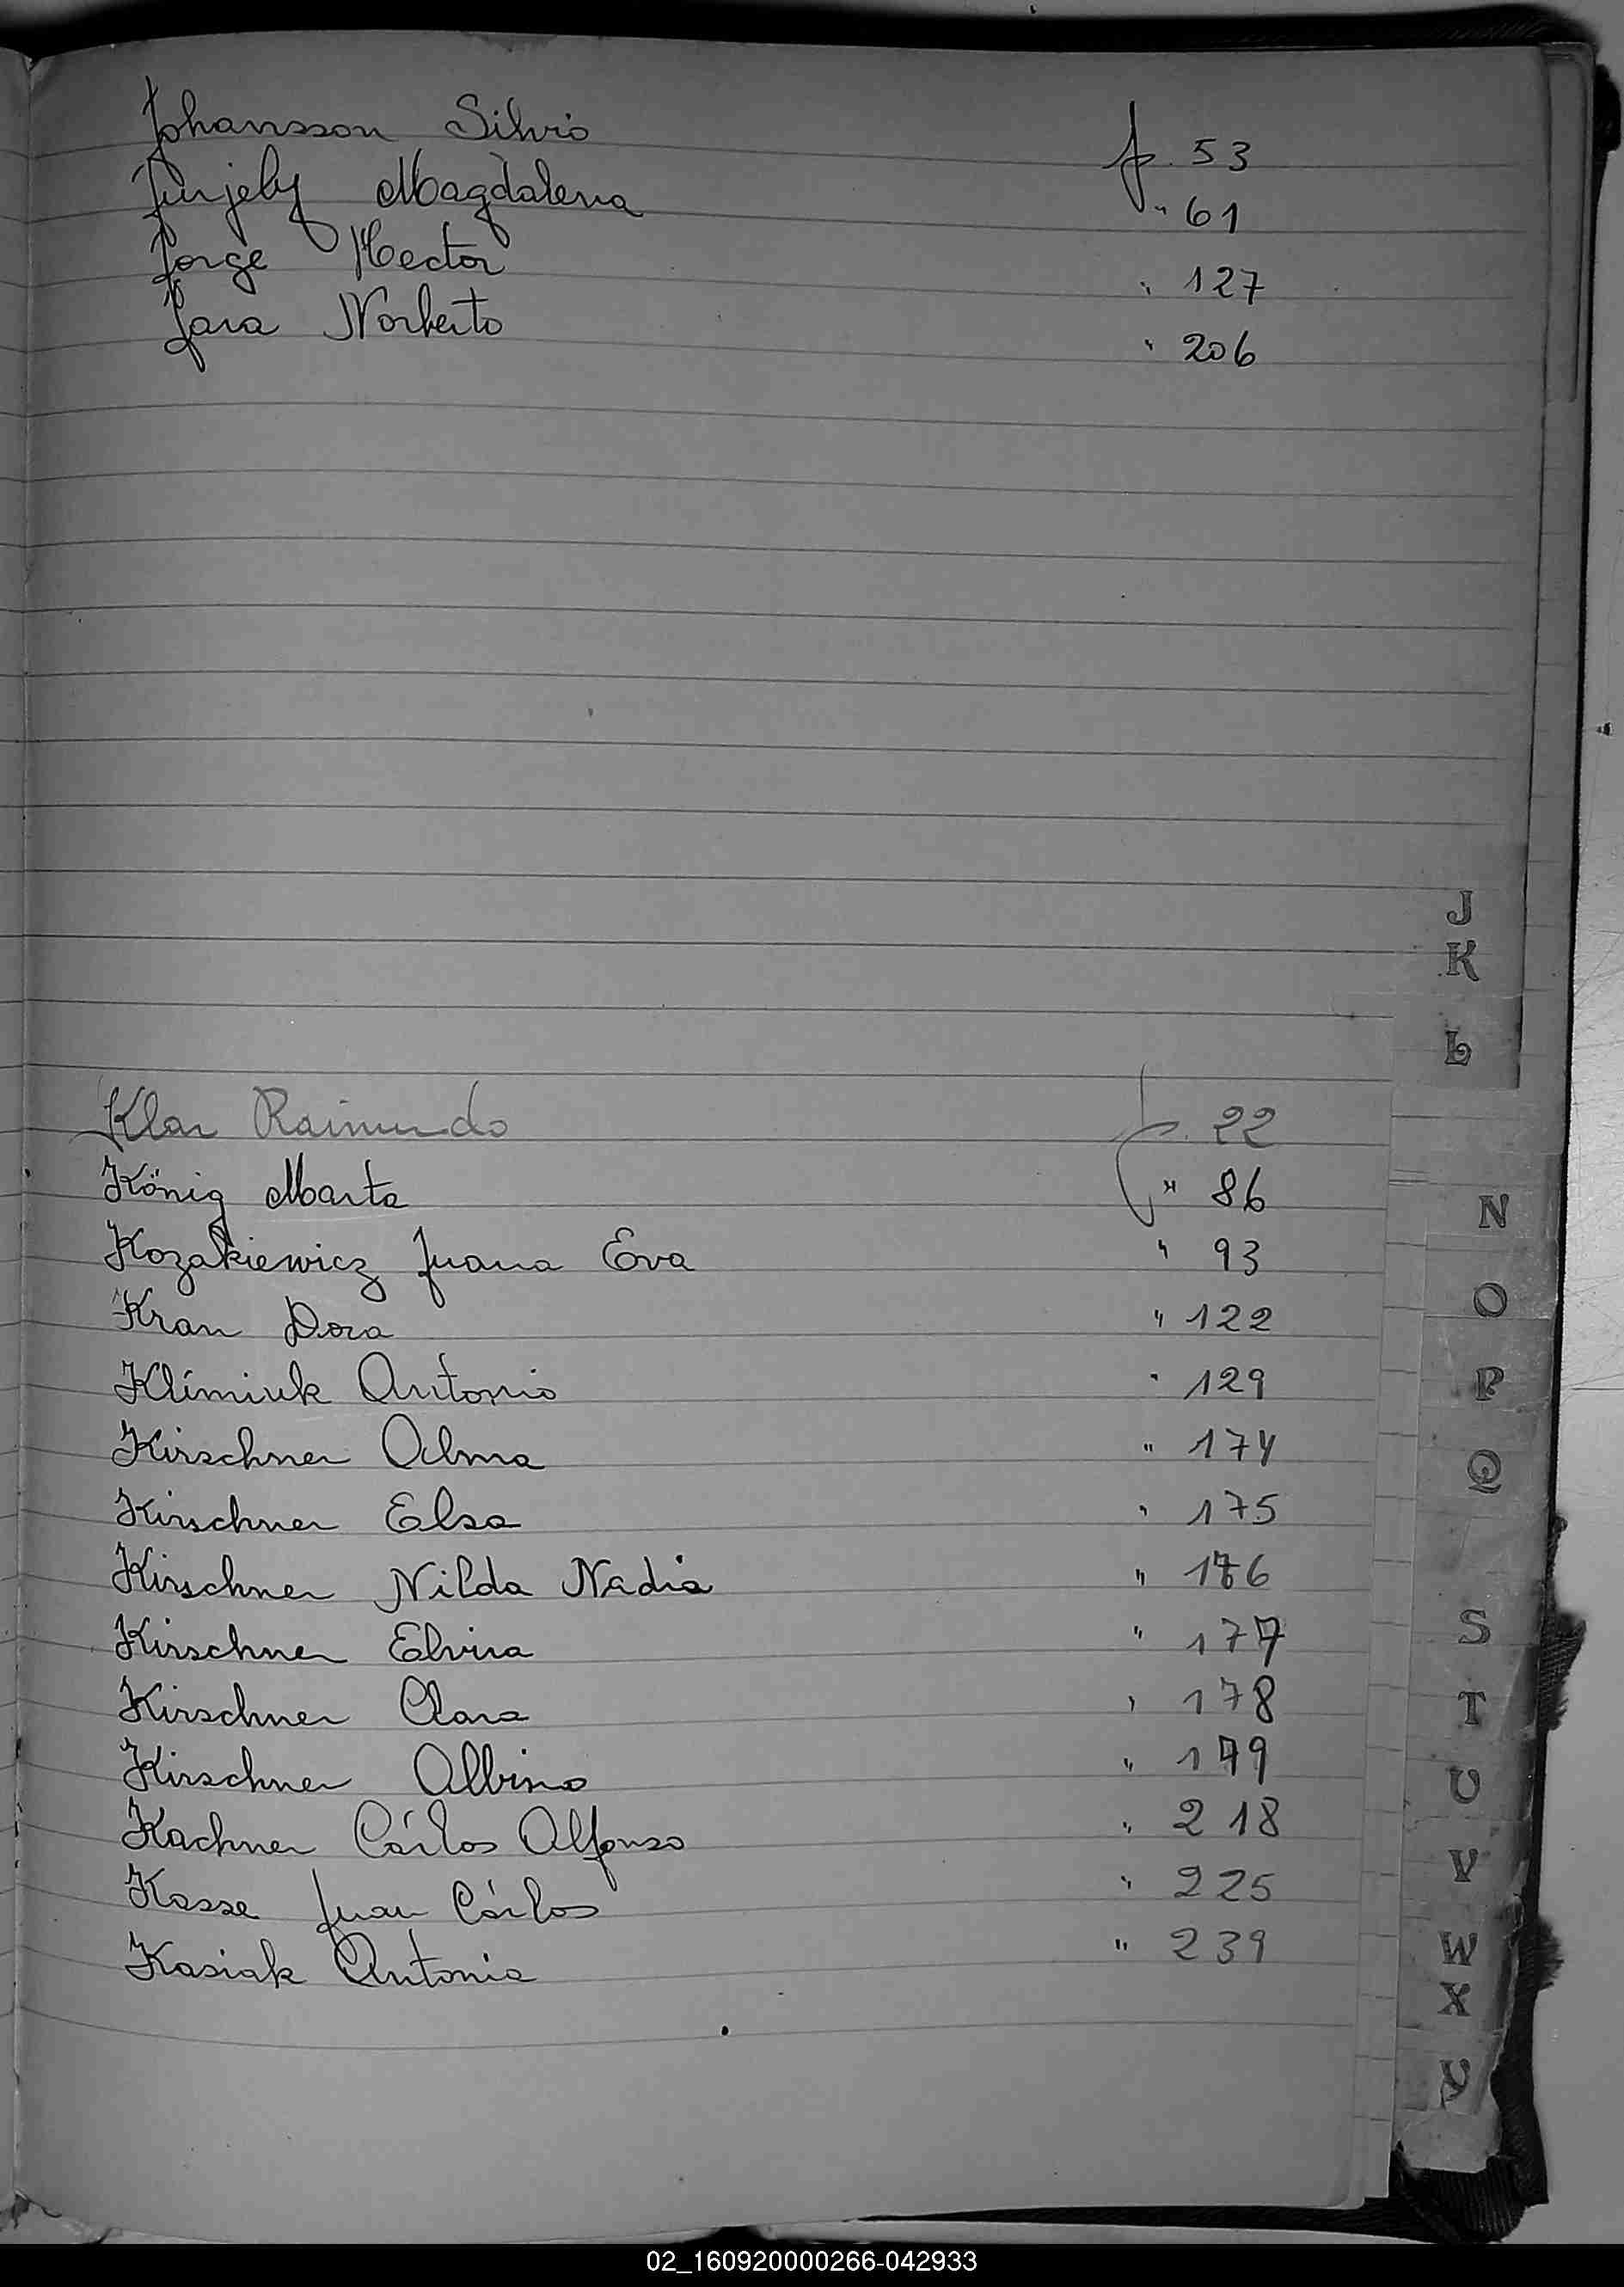 Johansson Silvio p. 53
Jurjely Magdalena " 61
Jorge Hector " 127
Jara Norberto " 206
J
K
L
Klar Raimundo p. 22
König Marta " 86
N
Kozakiewicz Juana Eva " 93
Kran Dora " 122
O
Klimiuk Antonio " 129
P
Kirschner Alma " 174
Q
Kirschner Elsa " 175
Kirschner Nilda Nadia " 176
Kirschner Elvira " 177
S
Kirschner Clara " 178
T
Kirschner Albino " 179
U
Kachner Cárlos Alfonso " 218
V
Kasse Juan Cárlos " 225
Kasiak Antonia " 239
W
X
Y
02_160920000266-042933